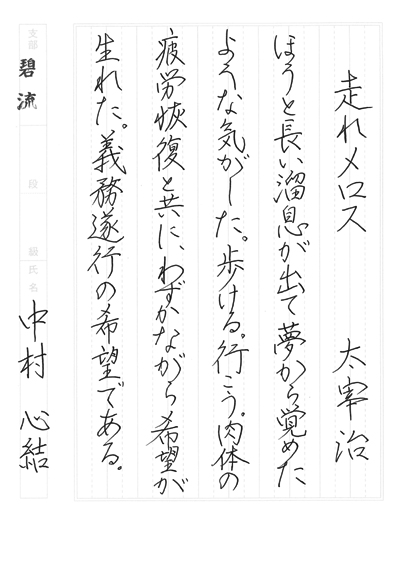 走れメロス　太宰治
ほうと長い溜息が出て夢から覚めた
ような気がした。歩ける。行こう。肉体の
疲労恢復と共に、わずかながら希望が
生れた。義務遂行の希望である。
支部 碧流 段 級 氏名 中村 心結